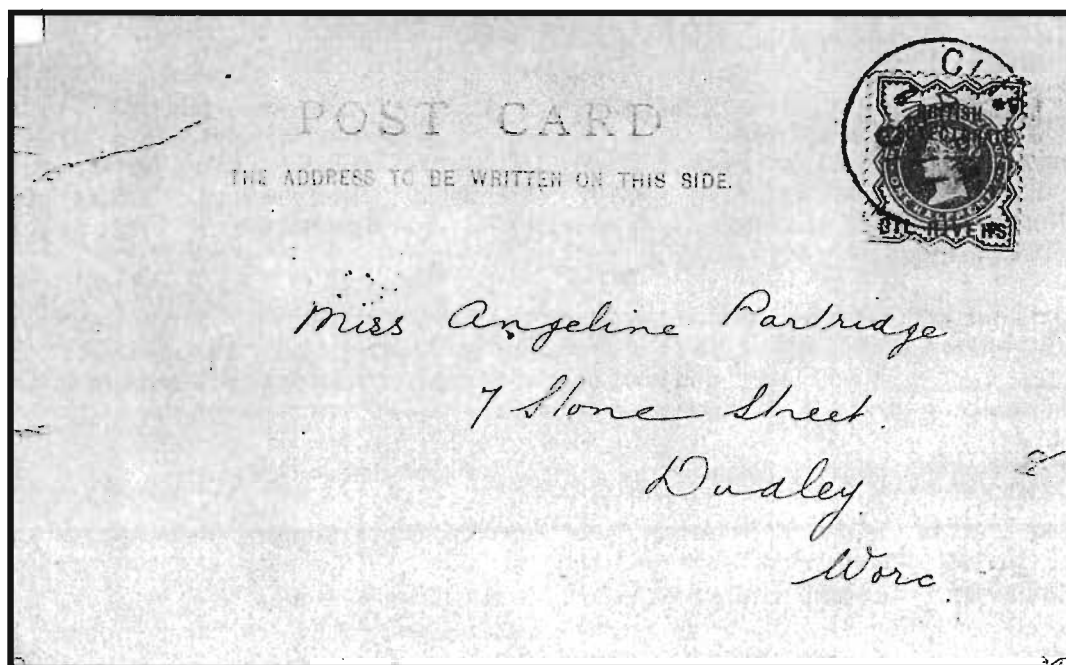 POST CARD
THE ADDRESS TO BE WRITTEN ON THIS SIDE.
BRITISH
PROTECTORATE
OIL RIVERS
Miss Angeline Partridge
7 Stone Street.
Dudley.
Worc.